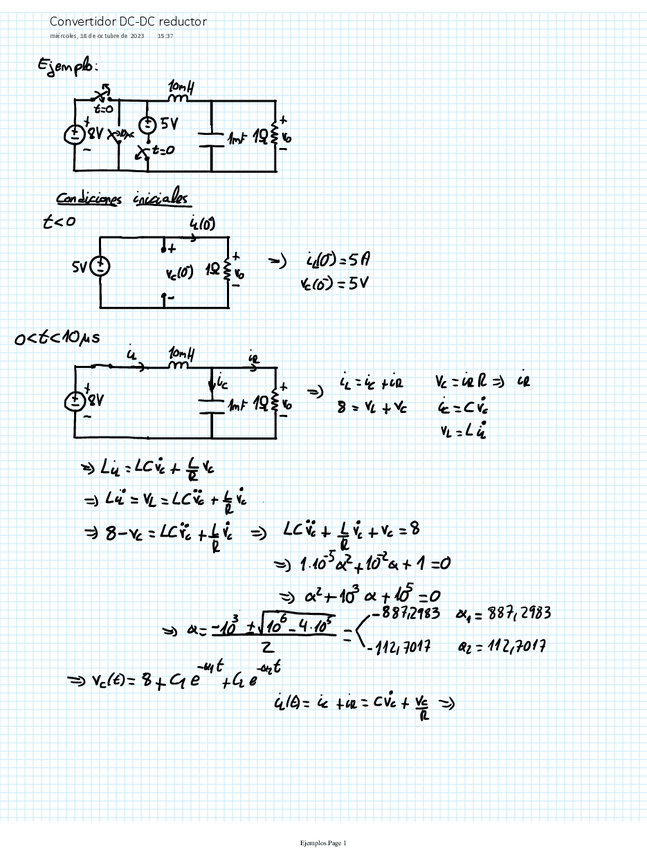 Convertidor DC-DC reductor
miércoles, 18 de octubre de 2023 15:37
Ejemplo:
10mH
t=0
8V
5V
t=0
1mF 1Ω
v₀
Condiciones iniciales
t<0
i_L(0⁻)
5V
v_C(0⁻) 1Ω v₀
=> i_L(0⁻)=5A
v_C(0⁻)=5V
0<t<10μs
i_L 10mH i_R
8V i_C 1mF 1Ω v₀
=> i_L = i_C + i_R v_C = i_R R => i_R
8 = v_L + v_C i_C = C v̇_C
v_L = L i̇_L
=> L i_L = LC v̇_C + L/R v_C
=> L i̇_L = v_L = LC v̈_C + L/R v̇_C
=> 8-v_C = LC v̈_C + L/R v̇_C => LC v̈_C + L/R v̇_C + v_C = 8
=> 1·10⁻⁵α²+10⁻²α+1=0
=> α²+10³α+10⁵=0
=> α = (-10³ ± √(10⁶-4·10⁵))/2 = -887,2983 α₁ = 887,2983
-112,7017 α₂ = 112,7017
=> v_C(t) = 8 + C₁e^(-α₁t) + C₂e^(-α₂t)
i_L(t) = i_C + i_R = C v̇_C + v_C/R =>
Ejemplos Page 1